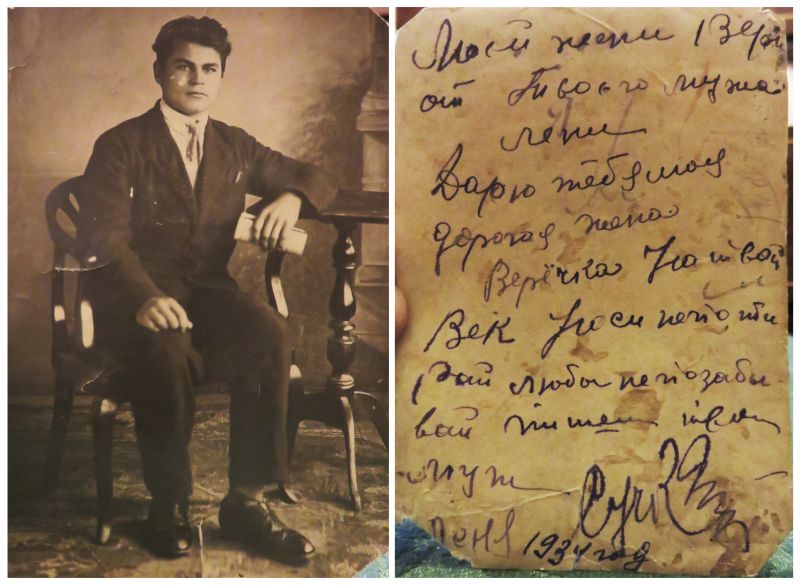 Моей жени Вери
от Твоего мужа
лени
Дарю тебя моя
дорогая жена
Верёчка На твой
Век Носи непоти
рай люби непозаби
вай пишет
муж
Леня
1934 год